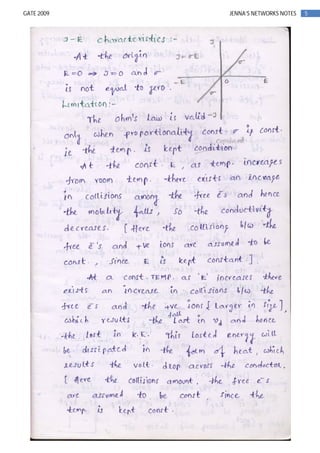 GATE 2009 JENNA'S NETWORKS NOTES 5
J-E characteristics :-
At the origin
E=0 ⇒ J=0 and σ
is not equal to zero.
J
J=σE
σ
-E O E
σ
-J
Limitation:-
The ohm's law is valid
only when proportionality const. σ is const.
ie the temp. is kept condition
At the const. E, as temp. increases
from room temp. there exists an increase
in collisions among the free ēs and hence
the mobility falls, so the conductivity
decreases. [Here the collisions b/w the
free ē's and +ve ions are assumed to be
const., since E is kept constant.]
At a const. TEMP. as 'E' increases there
exists an increase in collisions b/w the
free ē's and the +ve ions [Larger in size],
which results the lost in vd and hence
fall
the lost in K.E. This losted energy will
be dissipated in the form of heat, which
results the volt. drop across the conductor.
[Here the collisions amount, the free ē s
are assumed to be const. since the
temp. is kept const.